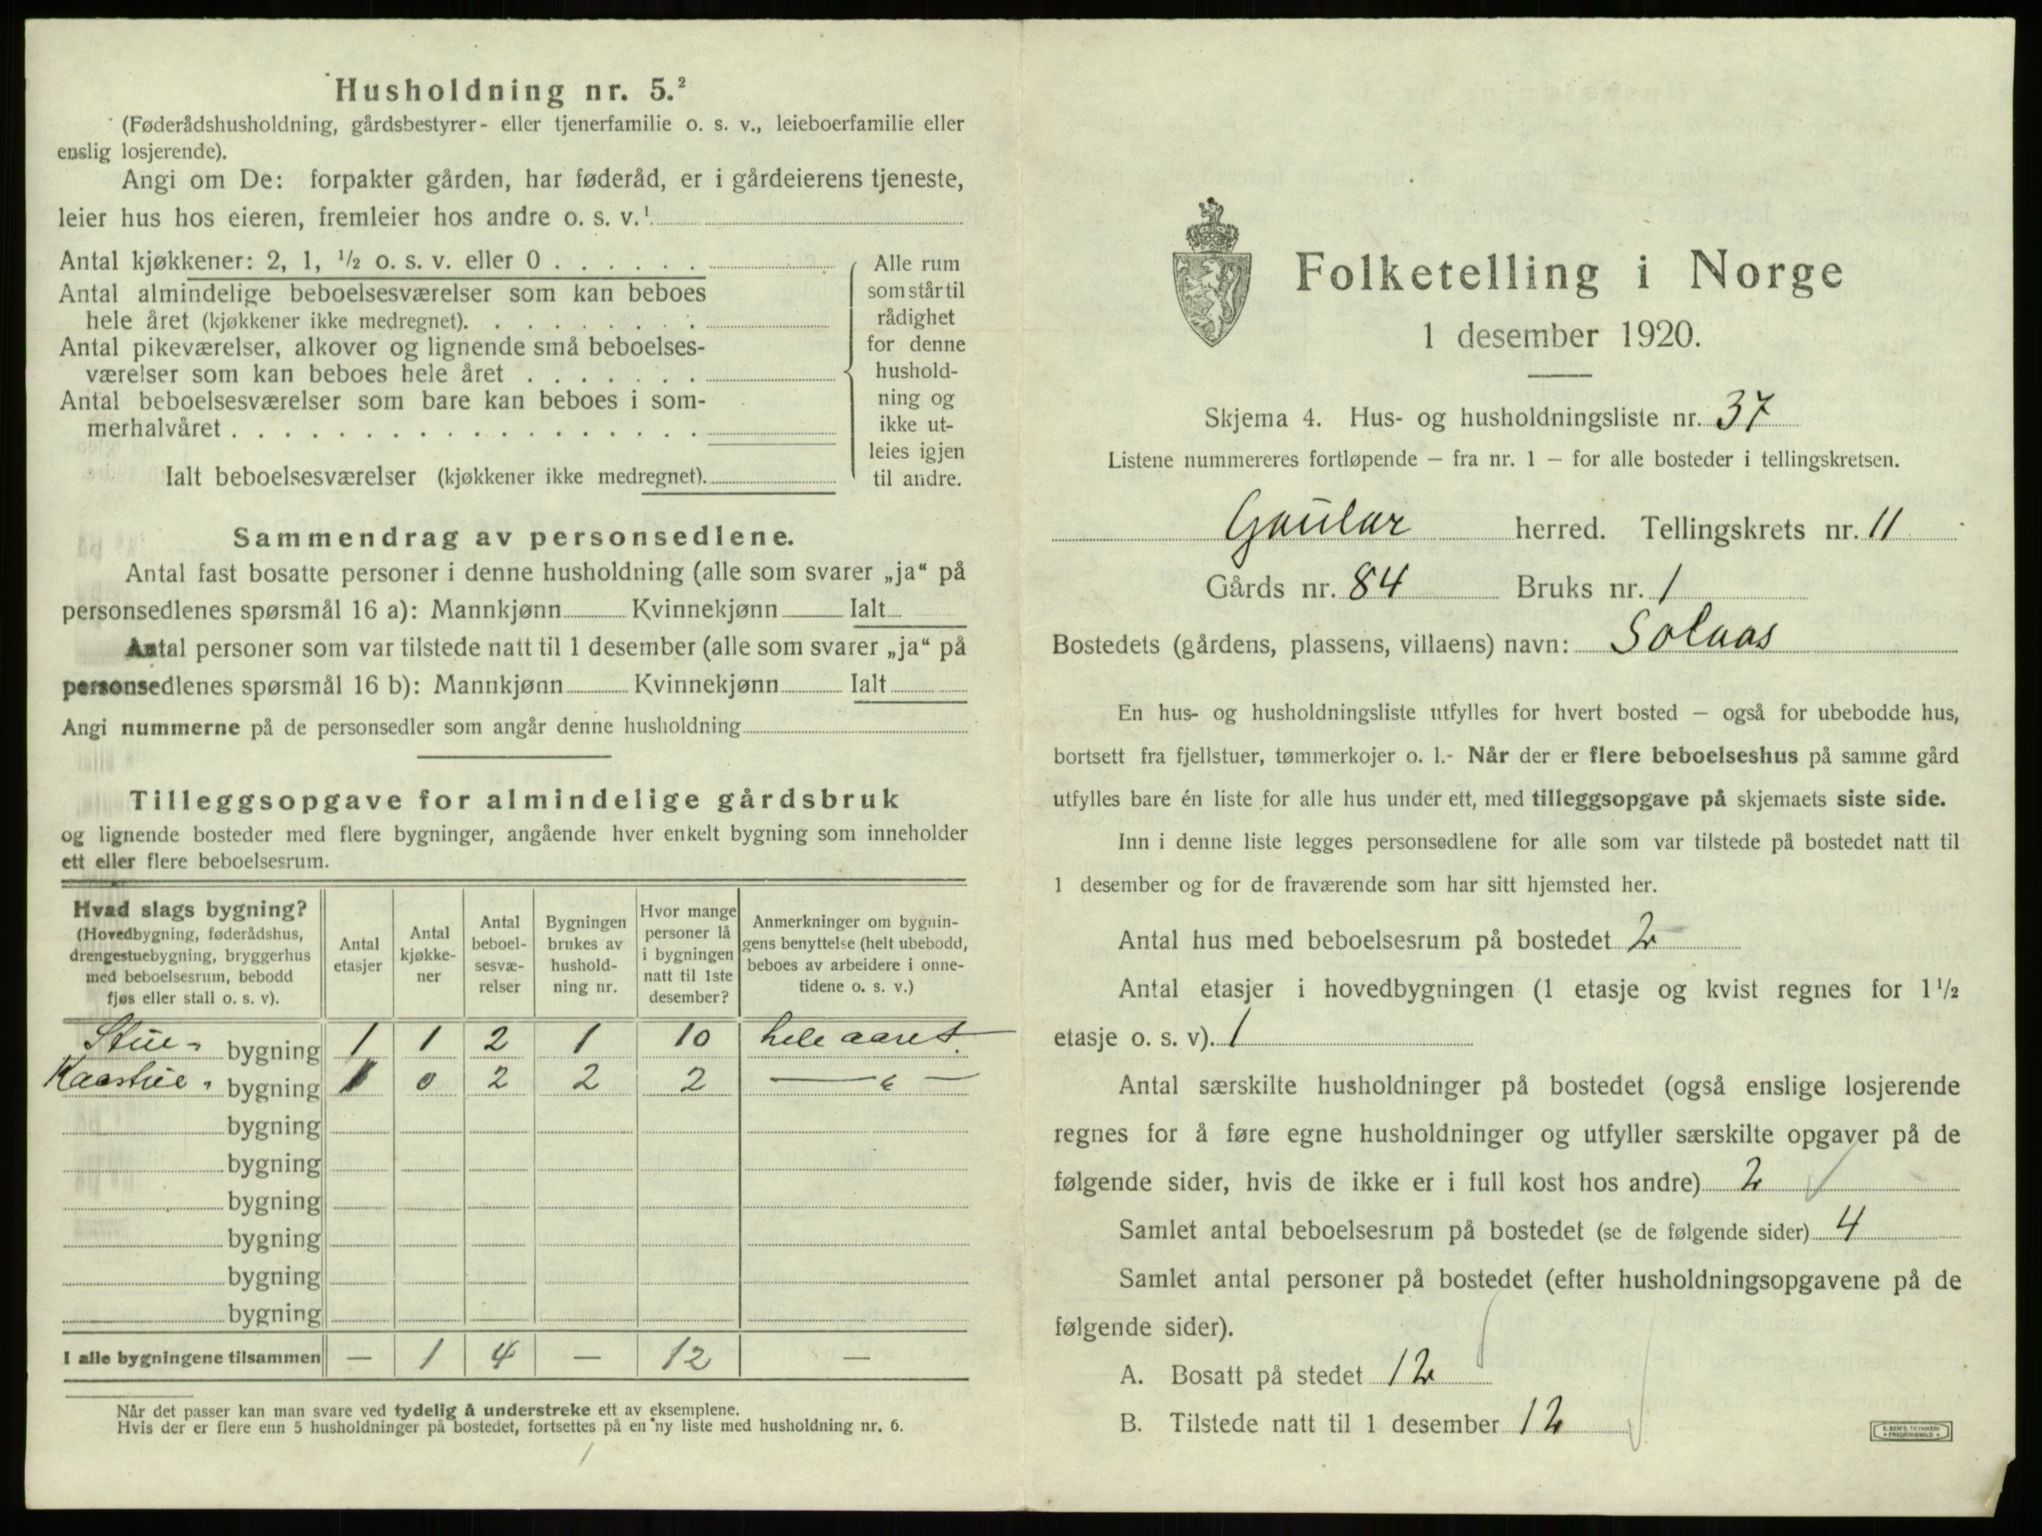 Husholdning nr. 5.²
(Føderådshusholdning, gårdsbestyrer- eller tjenerfamilie o. s. v., leieboerfamilie eller
enslig losjerende).
Angi om De: forpakter gården, har føderåd, er i gårdeierens tjeneste,
leier hus hos eieren, fremleier hos andre o. s. v.¹
Antal kjøkkener: 2, 1, ½ o. s. v. eller 0 . . . . . .
Antal almindelige beboelsesværelser som kan beboes
hele året (kjøkkener ikke medregnet). . . . . . . . .
Antal pikeværelser, alkover og lignende små beboelses-
værelser som kan beboes hele året . . . . . . .
Antal beboelsesværelser som bare kan beboes i som-
merhalvåret . . . . . . . . . . . . . . . . . .
Ialt beboelsesværelser (kjøkkener ikke medregnet).
Alle rum
som står til
rådighet
for denne
hushold-
ning og
ikke ut-
leies igjen
til andre.
Sammendrag av personsedlene.
Antal fast bosatte personer i denne husholdning (alle som svarer „ja“ på
personsedlenes spørsmål 16 a): Mannkjønn Kvinnekjønn Ialt
Antal personer som var tilstede natt til 1 desember (alle som svarer „ja“ på
personsedlenes spørsmål 16 b): Mannkjønn Kvinnekjønn Ialt
Angi nummerne på de personsedler som angår denne husholdning
Tilleggsopgave for almindelige gårdsbruk
og lignende bosteder med flere bygninger, angående hver enkelt bygning som inneholder
ett eller flere beboelsesrum.
Hvad slags bygning?
(Hovedbygning, føderådshus,
drengestuebygning, bryggerhus
med beboelsesrum, bebodd
fjøs eller stall o. s. v).
Antal
etasjer
Antal
kjøkke-
ner
Antal
beboel-
sesvæ-
relser
Bygningen
brukes av
hushold-
ning nr.
Hvor mange
personer lå
i bygningen
natt til 1ste
desember?
Anmerkninger om bygnin-
gens benyttelse (helt ubebodd,
beboes av arbeidere i onne-
tidene o. s. v.)
Stue- bygning 1 1 2 1 10 hele aaret.
Kaarstue- bygning 1 0 2 2 2 — " —
bygning
bygning
bygning
bygning
bygning
bygning
I alle bygningene tilsammen — 1 4 — 12 —
Når det passer kan man svare ved tydelig å understreke ett av eksemplene.
Hvis der er flere enn 5 husholdninger på bostedet, fortsettes på en ny liste med husholdning nr. 6.
Folketelling i Norge
1 desember 1920.
Skjema 4. Hus- og husholdningsliste nr. 37
Listene nummereres fortløpende — fra nr. 1 — for alle bosteder i tellingskretsen.
Gaular herred. Tellingskrets nr. 11
Gårds nr. 84 Bruks nr. 1
Bostedets (gårdens, plassens, villaens) navn: Solaas
En hus- og husholdningsliste utfylles for hvert bosted — også for ubebodde hus,
bortsett fra fjellstuer, tømmerkojer o. l.- Når der er flere beboelseshus på samme gård
utfylles bare én liste for alle hus under ett, med tilleggsopgave på skjemaets siste side.
Inn i denne liste legges personsedlene for alle som var tilstede på bostedet natt til
1 desember og for de fraværende som har sitt hjemsted her.
Antal hus med beboelsesrum på bostedet 2
Antal etasjer i hovedbygningen (1 etasje og kvist regnes for 1½
etasje o. s. v). 1
Antal særskilte husholdninger på bostedet (også enslige losjerende
regnes for å føre egne husholdninger og utfyller særskilte opgaver på de
følgende sider, hvis de ikke er i full kost hos andre) 2
Samlet antal beboelsesrum på bostedet (se de følgende sider) 4
Samlet antal personer på bostedet (efter husholdningsopgavene på de
følgende sider).
A. Bosatt på stedet 12
B. Tilstede natt til 1 desember 12